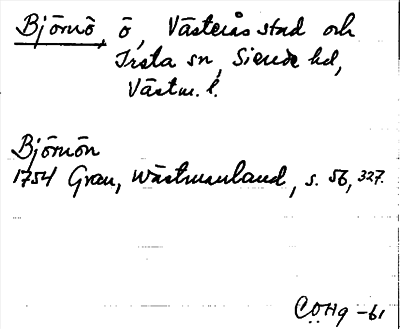 Björnö, ö, Västerås stad och
Irsta sn, Siende hd,
Västm. l.
Björnön
1754 Grau, Wästmanland, s. 56, 327.
C.O.Hg -61